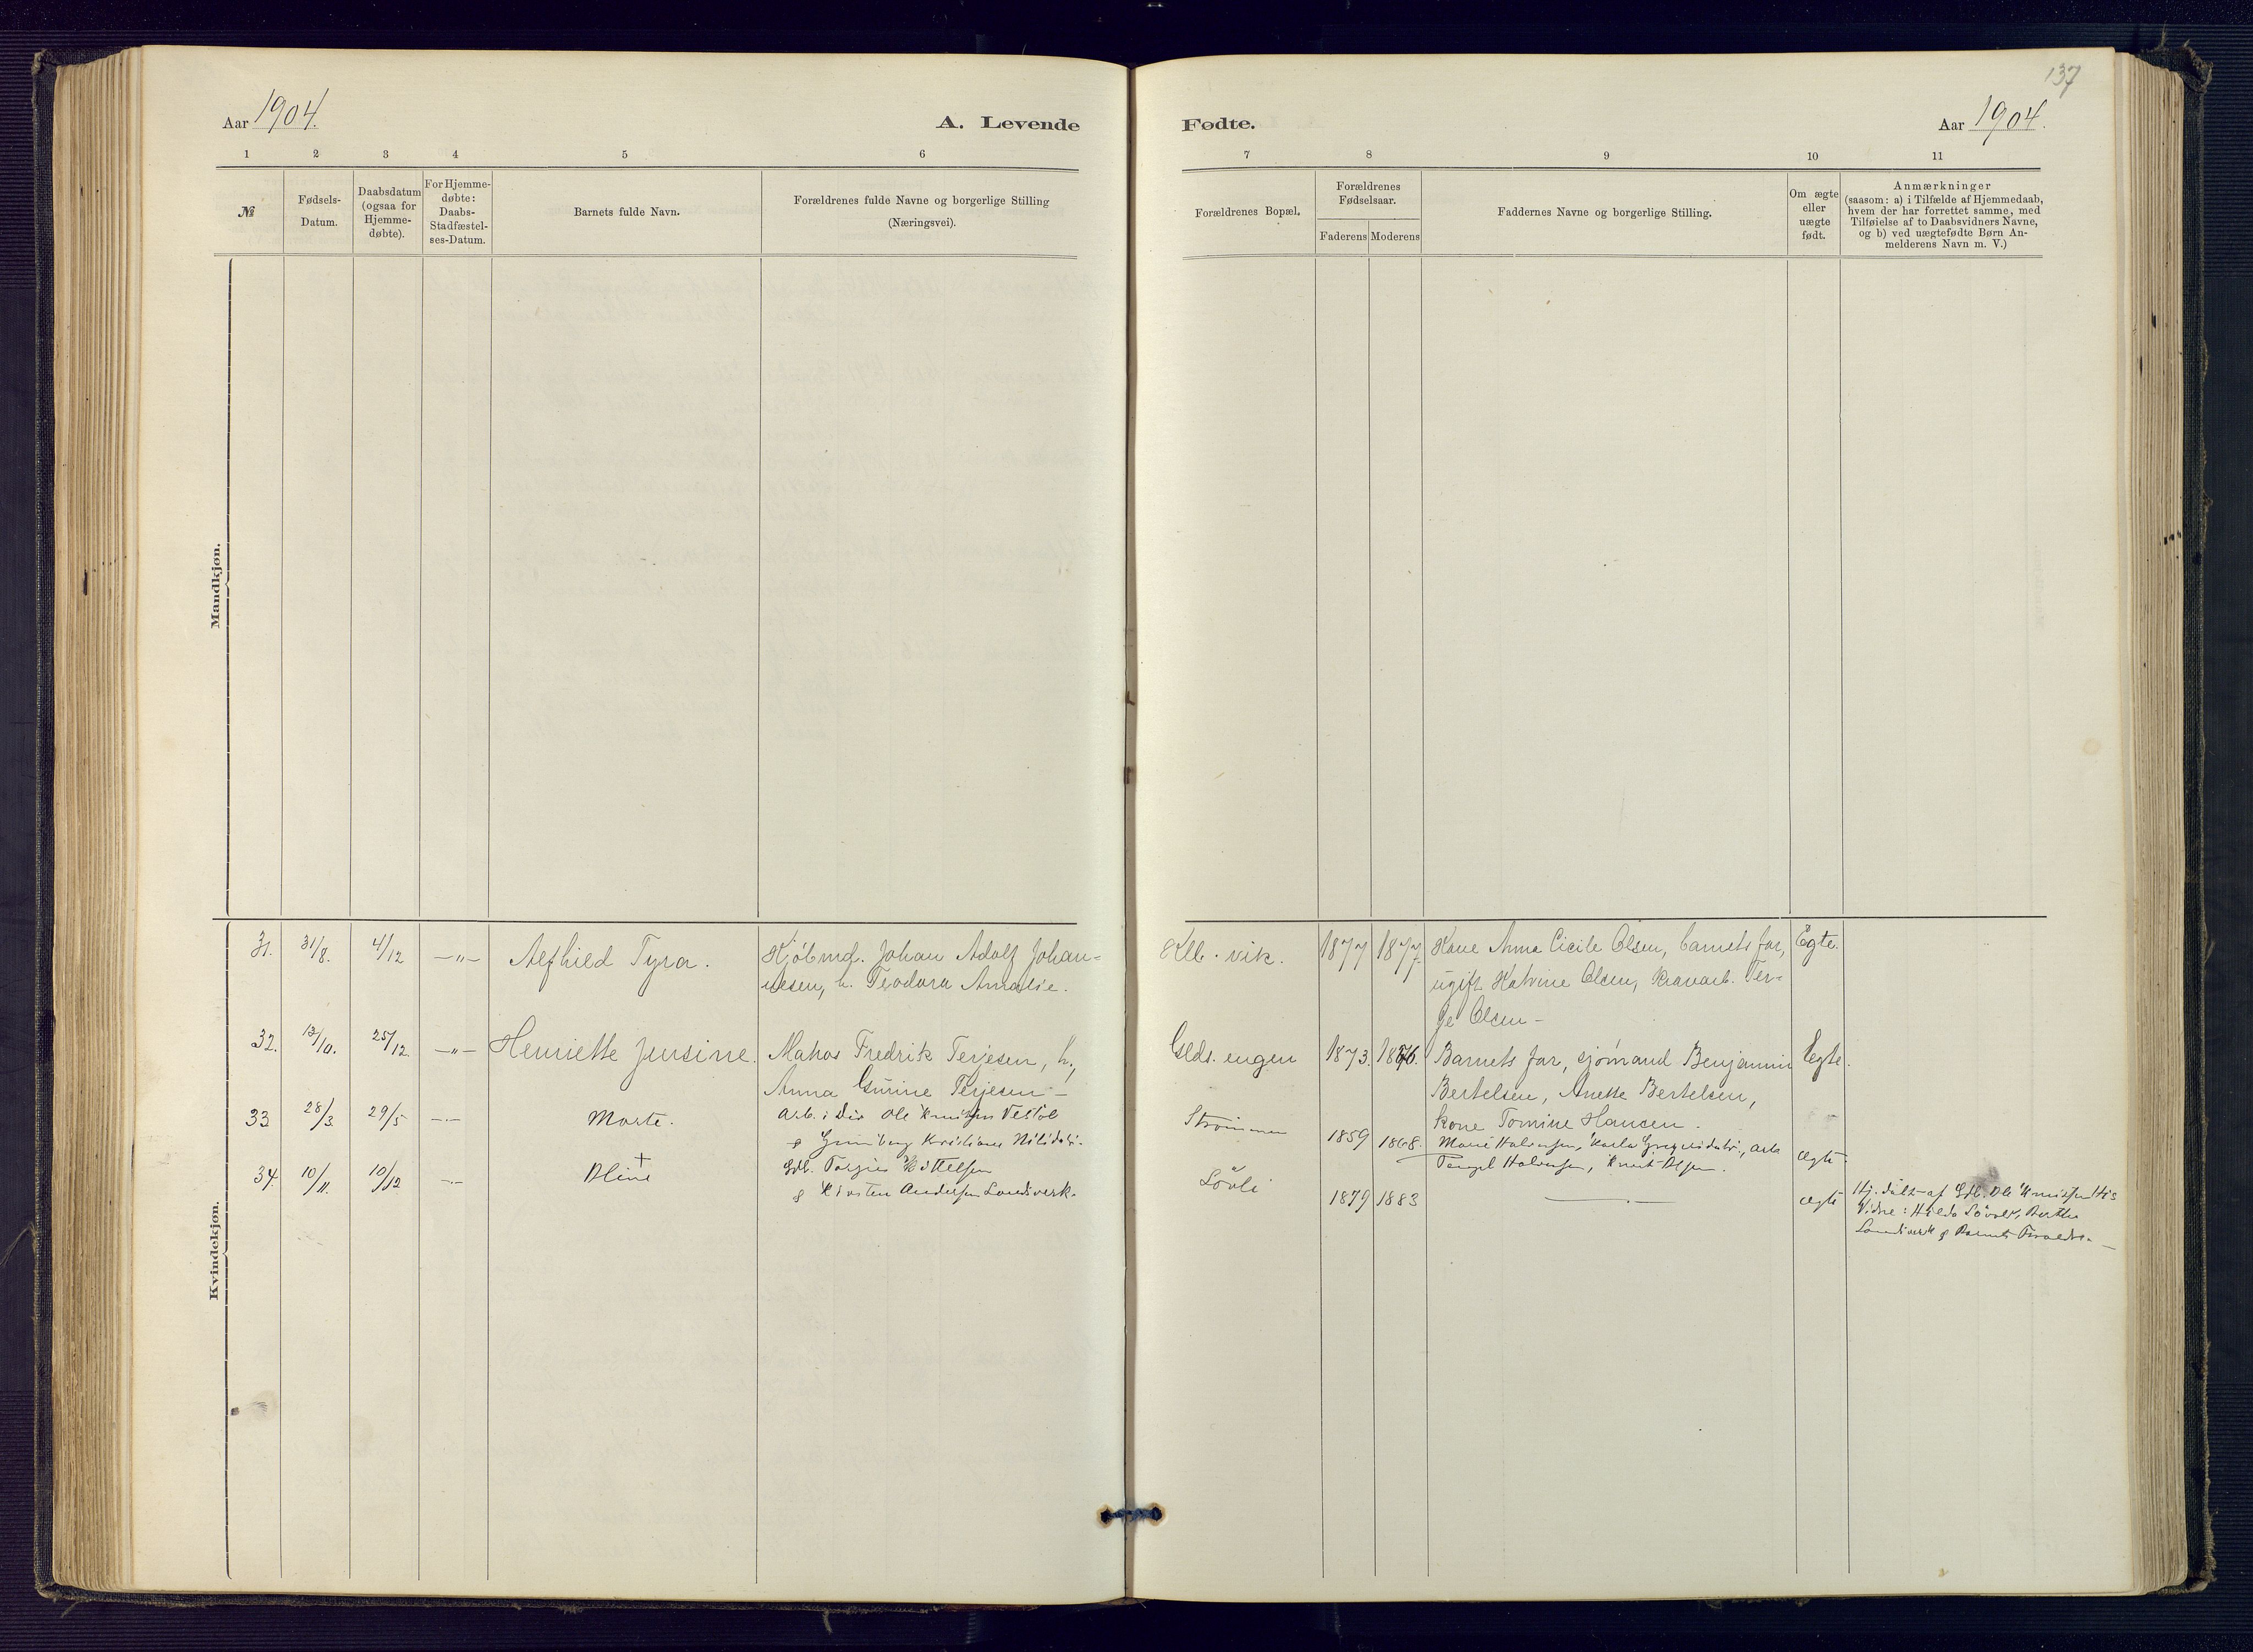 137
Aar 1904.
A. Levende
Fødte.
Aar 1904.
1 2 3 4 5 6
7 8 9 10 11
№
Fødsels-
Datum.
Daabsdatum
(ogsaa for
Hjemme-
døbte).
For Hjemme-
døbte:
Daabs-
Stadfæstel-
ses-Datum.
Barnets fulde Navn.
Forældrenes fulde Navne og borgerlige Stilling
(Næringsvei).
Forældrenes Bopæl.
Forældrenes
Fødselsaar.
Faderens Moderens
Faddernes Navne og borgerlige Stilling.
Om ægte
eller
uægte
født.
Anmærkninger
(saasom: a) i Tilfælde af Hjemmedaab,
hvem der har forrettet samme, med
Tilføielse af to Daabsvidners Navne,
og b) ved uægtefødte Børn An-
melderens Navn m. V.)
Mandkjøn.
Kvindekjøn.
31. 31/8. 4/12 —„— Alfhild Tyra. Kjøbmd. Johan Adolf Johan-
nesen, h. Teodora Amalie.
Klb. vik. 1877 1877. Kone Anna Cicile Olsen, barnets far, Egte.
ugift Katrine Olsen, Ter-
je Olsen —
32. 13/10. 25/12. —„— Henriette Jensine. Fredrik Terjesen, h.,
Anna Gurine Terjesen —
Glds. engen 1873. 1876. Barnets far, sjømand Benjamin Egte.
Bertelsen, Anette Bertelsen,
kone Tomine Hansen.
33 28/3. 29/5 —„— Marte. Arb. i Ole Knutsen Vestøl
g Kristiane
Strømmen 1859 1868. Marie Halvorsen, Karla
Halvorsen, Knut Olsen. ægte
34. 10/11. 10/12 —„— Oline † Gdb. Torgius Kittelsen
g Kirsten Andersen Landsverk.
Løvli 1879 1883 —„— ægte Hj. døbt af Gdb. Ole Knutsen His
Vidne: Hilda Berthe
Landsverk g Barnets